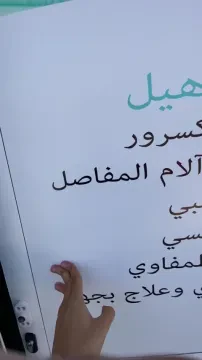 هيل
كسرور
آلام المفاصل
بي
سي
لمفاوي
ي وعلاج